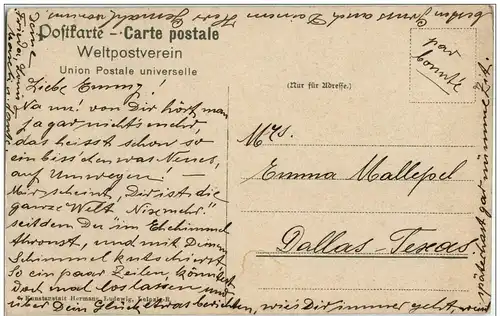 Postkarte – Carte postale
Weltpostverein
Union Postale universelle
(Nur für Adresse.)
par
bonté
Liebe Emmy!
Na nu! von Dir hört man
ja gar nichts mehr,
das heisst schon so
ein bisschen was Neues,
auf Umwegen! –
Mir scheint, Dir ist die
ganze Welt Nixmehr.
seitdem Du im Ehehimmel
thronst, und mit Deinem
Schimmel kutschierst
So ein paar Zeilen, könntest
Doch mal loslassen und
über Dein Glück etwas berichten,
wie's Dir immer geht, weil
späterhast gar nimmer Zeit.
Gruss auch Deinem Herr Gemahl
Mrs.
Emma Mallepel
Dallas-Texas
Kunstanstalt Hermann Ludewig, Leipzig-R.